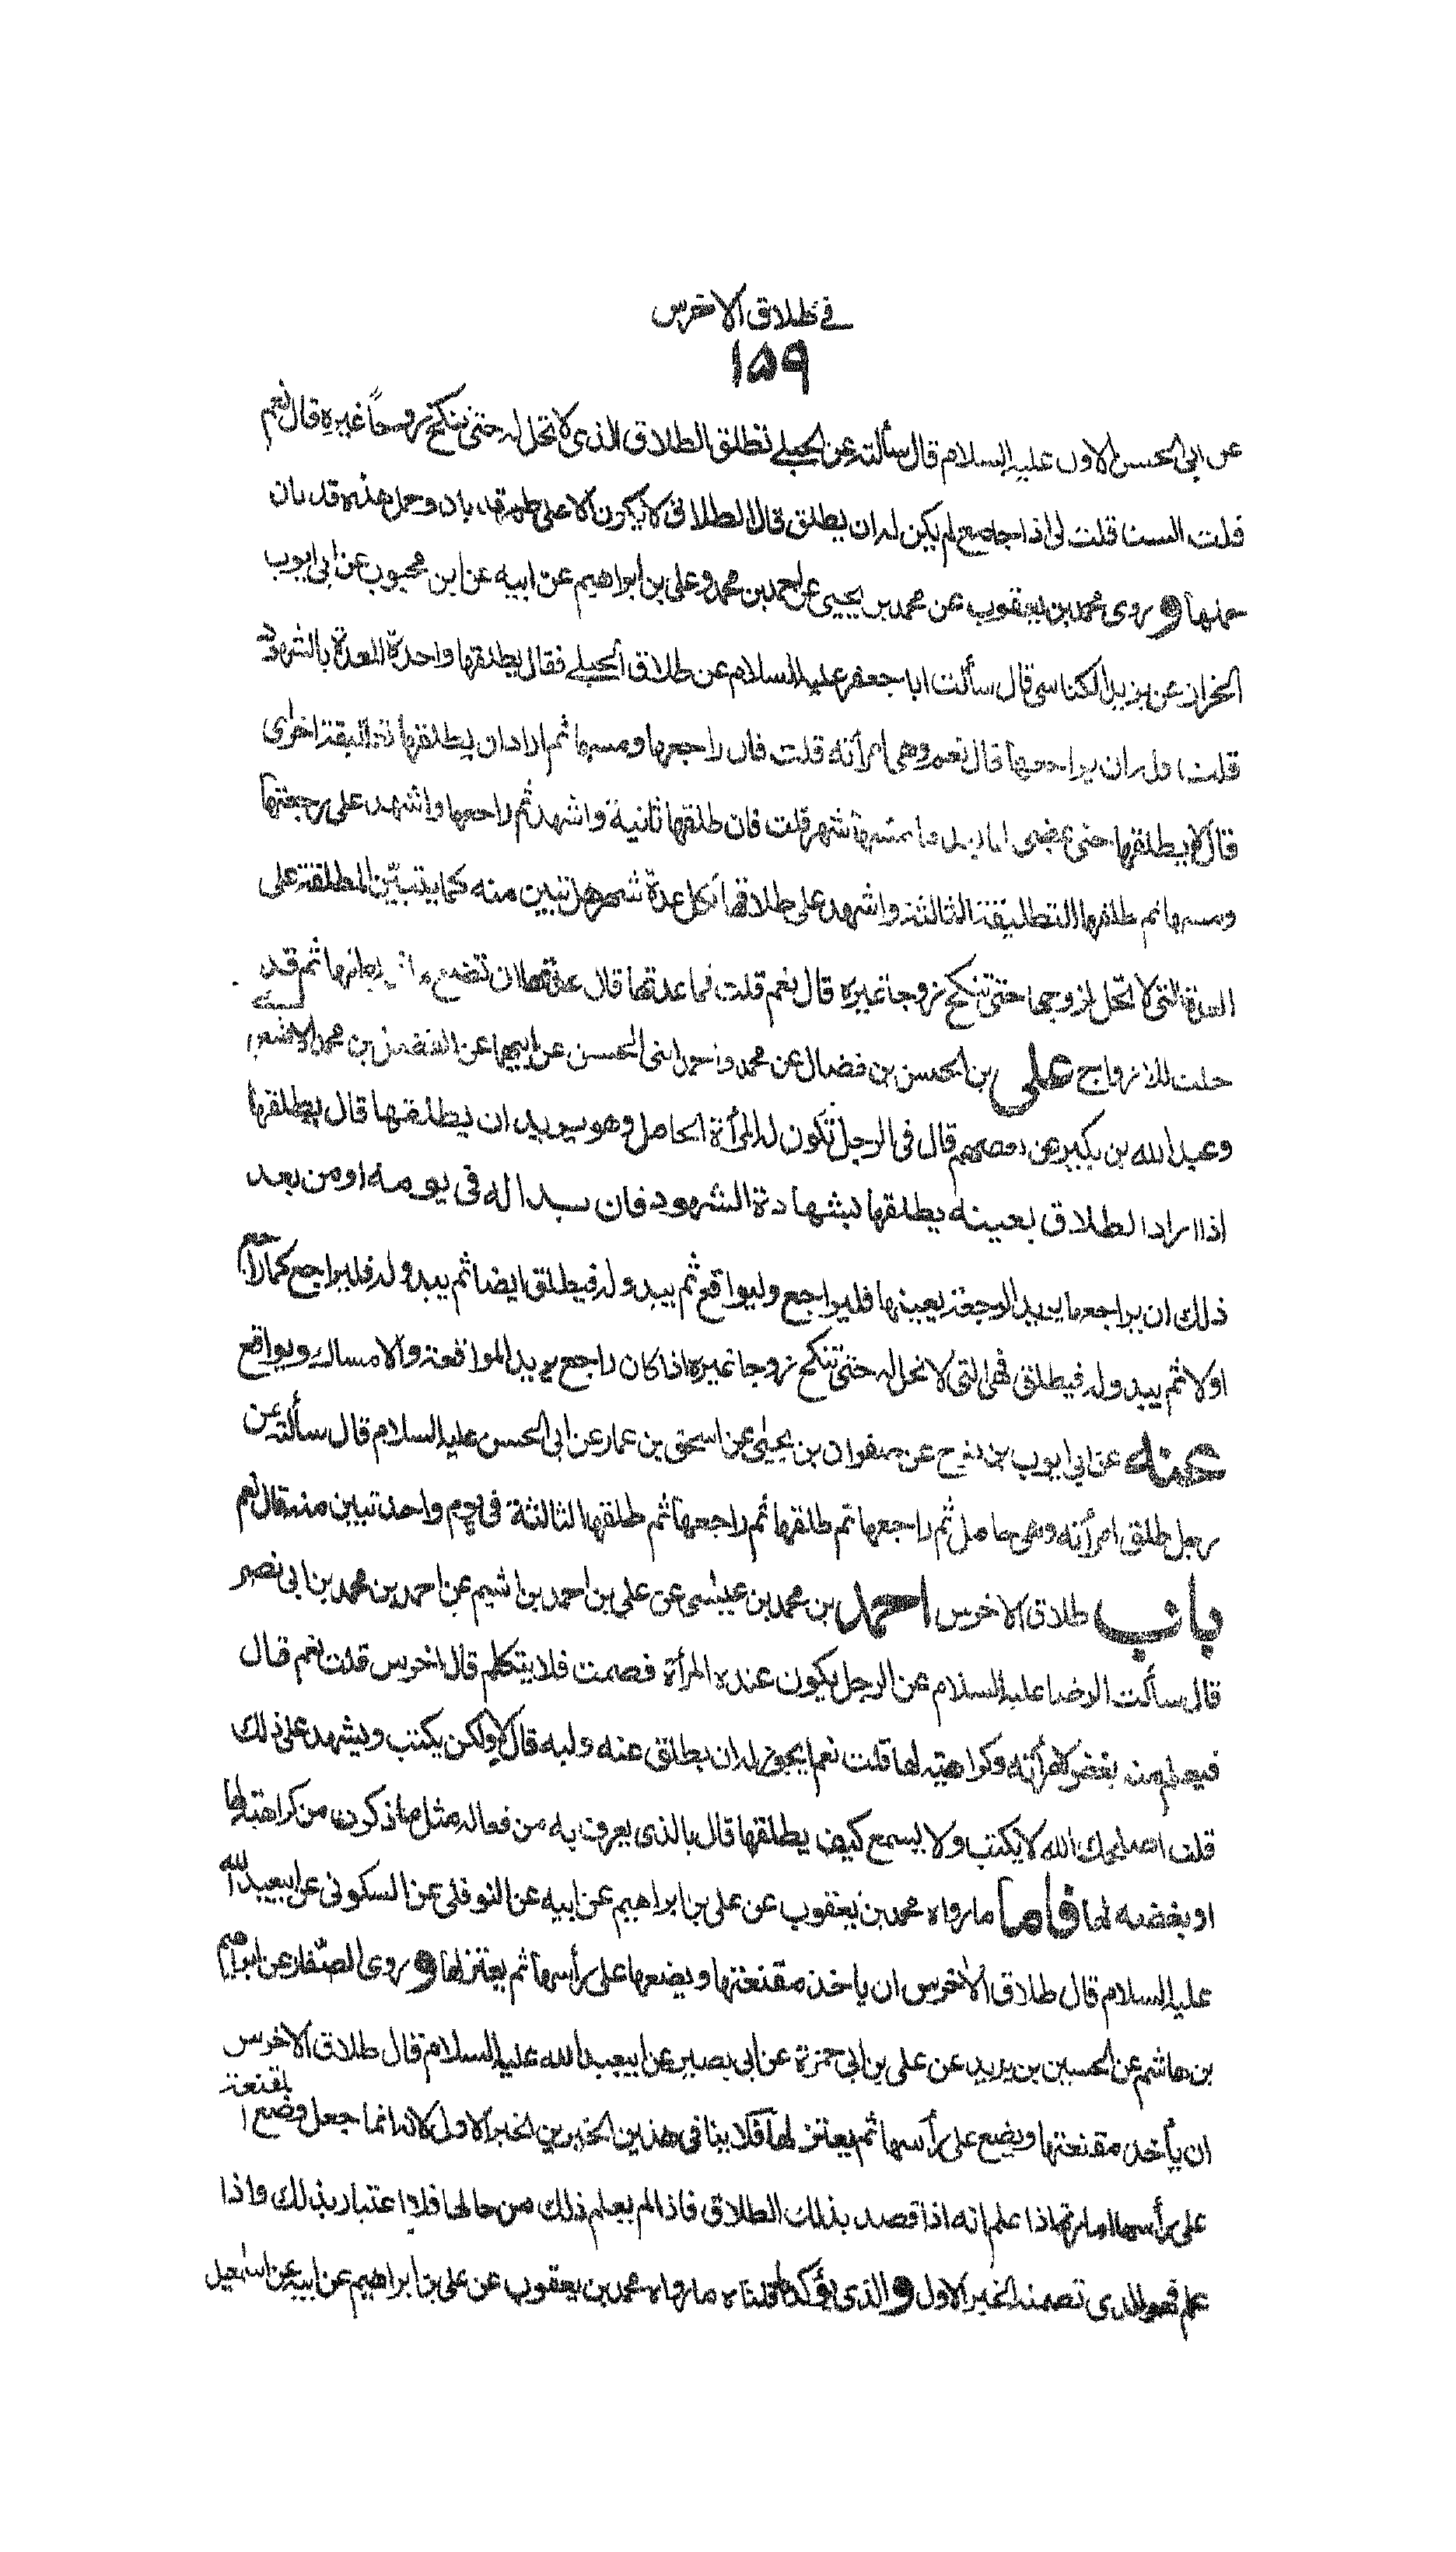 في طلاق الاخرس
١٥٩
عن ابى الحسن الاول عليه السلام قال سألته عن الحبلى تطلق الطلاق الذى لا تحل له حتى تنكح زوجاً غيره قال نعم
قلت الست قلت لى اذا جامع لم يكن له ان يطلق قال الطلاق لا يكون الا على طهر قد بان وحمل هذه قد بان
حملها و روى محمد بن يعقوب عن محمد بن يحيى عن احمد بن محمد وعلى بن ابراهيم عن ابيه عن ابن محبوب عن ابى ايوب
الخزاز عن يزيد الكناسى قال سألت ابا جعفر عليه السلام عن طلاق الحبلى فقال يطلقها واحدة للعدة بالشهود
قلت فله ان يراجعها قال نعم وهى امرأته قلت فان راجعها ومسها ثم اراد ان يطلقها تطليقة اخرى
قال لا يطلقها حتى يمضى لها بعد ما يمسها شهر قلت فان طلقها ثانية واشهد ثم راجعها واشهد على رجعتها
ومسها ثم طلقها التطليقة الثالثة واشهد على طلاقها لكل عدة شهر هل تبين منه كما تبين المطلقة على
العدة التى لا تحل لزوجها حتى تنكح زوجا غيره قال نعم قلت فما عدتها قال عدتها ان تضع ما فى بطنها ثم قد
حلت للازواج على بن الحسن بن فضال عن محمد واحمد ابنى الحسن عن ابيهما عن الفضل بن محمد الاشعرى
وعبد الله بن بكير عن بعضهم قال فى الرجل تكون له المرأة الحامل وهو يريد ان يطلقها قال يطلقها
اذا اراد الطلاق بعينه يطلقها بشهادة الشهود فان بدا له فى يومه او من بعد
ذلك ان يراجعها يريد الرجعة بعينها فليراجع وليواقع ثم يبدو له فيطلق ايضا ثم يبدو له فليراجع كما راجع
اولا ثم يبدو له فيطلق فهى التى لا تحل له حتى تنكح زوجا غيره اذا كان راجع يريد المواقعة والامساك ويواقع
عنه عن ابي ايوب بن نوح عن صفوان بن يحيى عن اسحق بن عمار عن ابى الحسن عليه السلام قال سألته عن
رجل طلق امرأته وهى حامل ثم راجعها ثم طلقها ثم راجعها ثم طلقها الثالثة فى يوم واحد تبين منه قال نعم
باب طلاق الاخرس احمد بن محمد بن عيسى عن على بن احمد بن اشيم عن احمد بن محمد بن ابى نصر
قال سألت الرضا عليه السلام عن الرجل يكون عنده المرأة فصمت فلا يتكلم قال اخرس قلت نعم قال
فيعلم منه بغض لامرأته وكراهته لها قلت نعم ايجوز له ان يطلق عنه وليه قال لا ولكن يكتب ويشهد على ذلك
قلت اصلحك الله لا يكتب ولا يسمع كيف يطلقها قال بالذى يعرف به من فعاله مثل ما ذكرت من كراهته لها
او بغضه لها فاما ما رواه محمد بن يعقوب عن على بن ابراهيم عن ابيه عن النوفلى عن السكونى عن ابيعبد الله
عليه السلام قال طلاق الاخرس ان ياخذ مقنعتها ويضعها على رأسها ثم يعتزلها و روى الصفار عن ابراهيم
بن هاشم عن الحسين بن يزيد عن على بن ابى حمزة عن ابى بصير عن ابيعبد الله عليه السلام قال طلاق الاخرس
ان يأخذ مقنعتها ويضع على رأسها ثم يعتزلها فلا ينافى هذين الخبرين الخبر الاول لانه انما جعل وضع المقنعة
على رأسها امارة اذا علم انه اذا قصد بذلك الطلاق فاذا لم يعلم ذلك من حالها فلا اعتبار بذلك واذا
علم فهو الذى تضمنه الخبر الاول والذى يؤكد ما قلناه ما رواه محمد بن يعقوب عن على بن ابراهيم عن ابيه عن اسمعيل